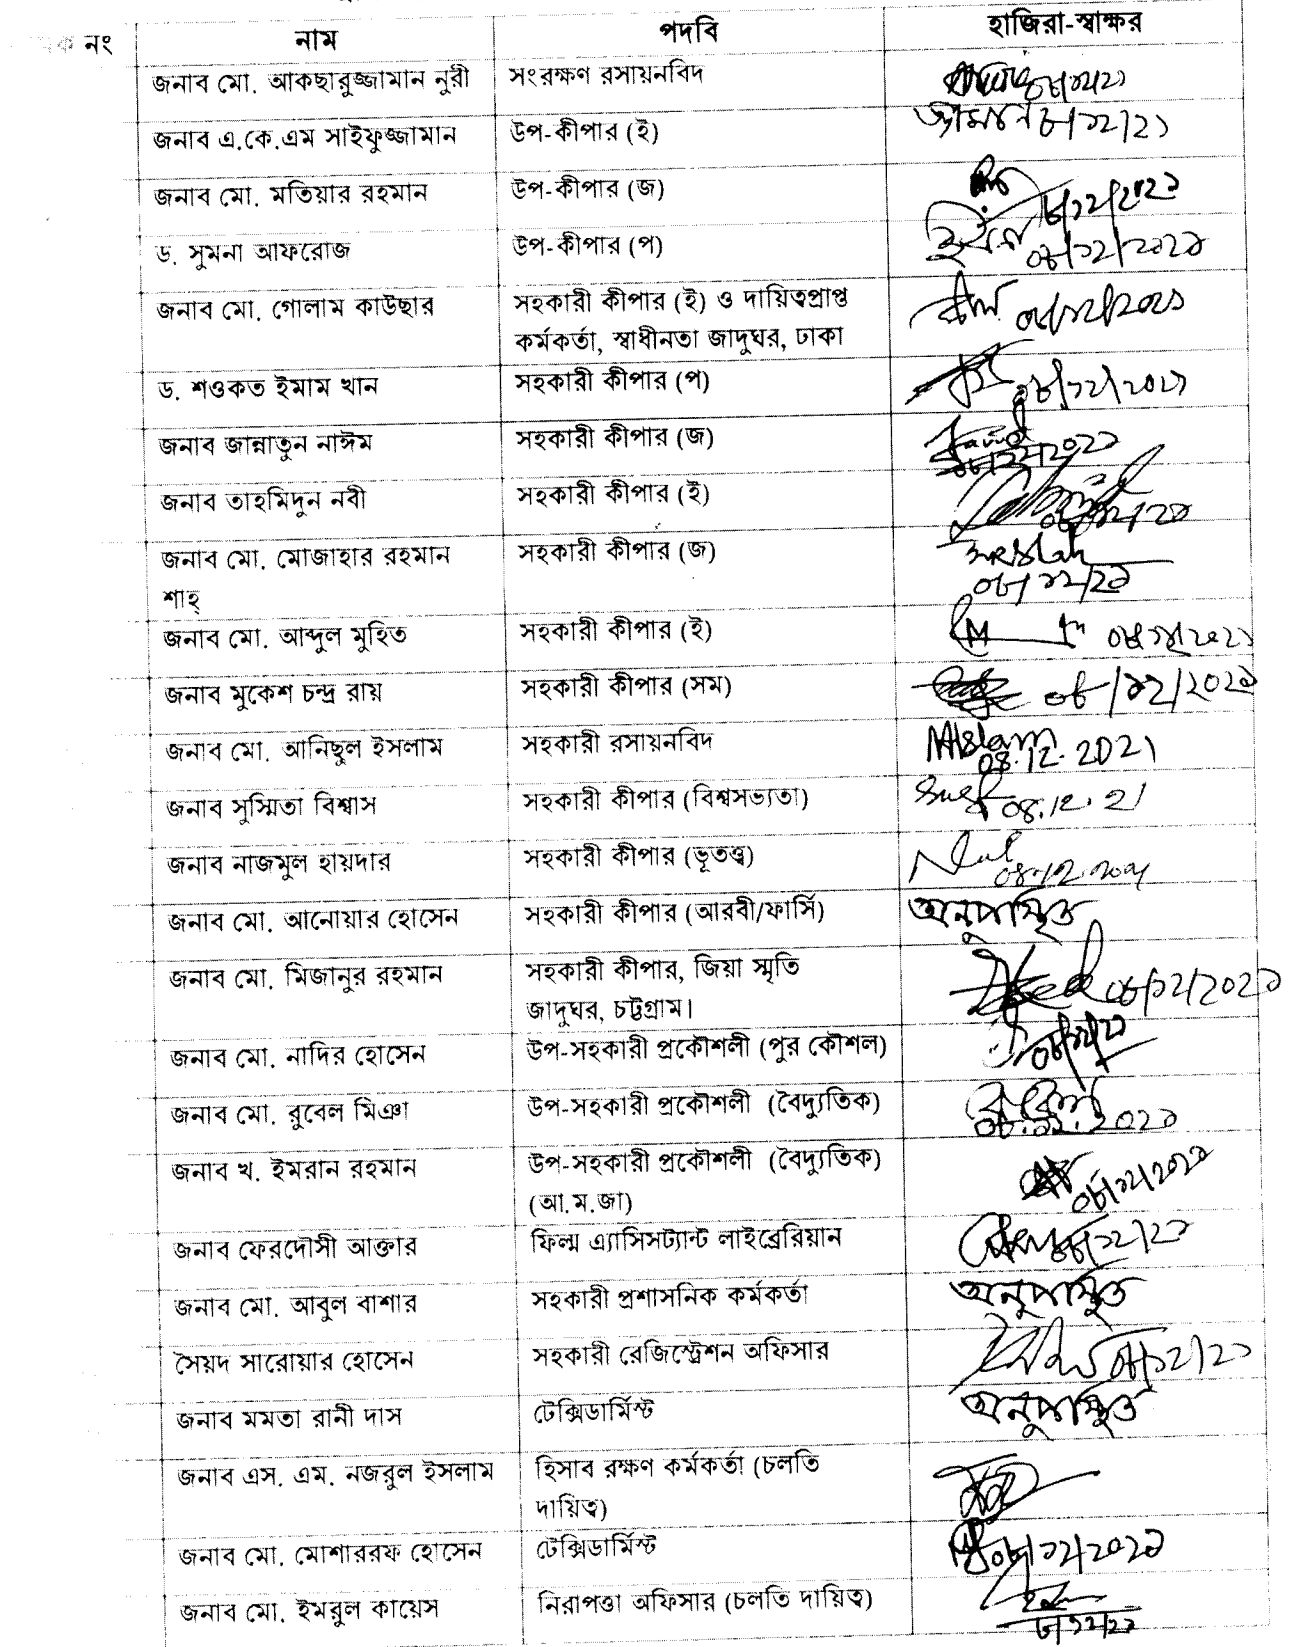 নং নাম পদবি হাজিরা-স্বাক্ষর
জনাব মো. আকছারুজ্জামান নুরী সংরক্ষণ রসায়নবিদ
জনাব এ.কে.এম সাইফুজ্জামান উপ-কীপার (ই) জামান ৮/১২/২১
জনাব মো. মতিয়ার রহমান উপ-কীপার (জ) ৮/১২/২০২১
ড. সুমনা আফরোজ উপ-কীপার (প) ০৮/১২/২০২১
জনাব মো. গোলাম কাউছার সহকারী কীপার (ই) ও দায়িত্বপ্রাপ্ত ০৮/১২/২০২১
কর্মকর্তা, স্বাধীনতা জাদুঘর, ঢাকা
ড. শওকত ইমাম খান সহকারী কীপার (প) ০৮/১২/২০২১
জনাব জান্নাতুন নাঈম সহকারী কীপার (জ) ০৮/১২/২০২১
জনাব তাহমিদুন নবী সহকারী কীপার (ই) ০৮/১২/২১
জনাব মো. মোজাহার রহমান সহকারী কীপার (জ)
শাহ্ ০৮/১২/২১
জনাব মো. আব্দুল মুহিত সহকারী কীপার (ই) ০৮/১২/২০২১
জনাব মুকেশ চন্দ্র রায় সহকারী কীপার (সম) ০৮/১২/২০২১
জনাব মো. আনিছুল ইসলাম সহকারী রসায়নবিদ MAIslam
08.12.2021
জনাব সুস্মিতা বিশ্বাস সহকারী কীপার (বিশ্বসভ্যতা) 08.12.21
জনাব নাজমুল হায়দার সহকারী কীপার (ভূতত্ত্ব) 08.12.2021
জনাব মো. আনোয়ার হোসেন সহকারী কীপার (আরবী/ফার্সি) অনুপস্থিত
জনাব মো. মিজানুর রহমান সহকারী কীপার, জিয়া স্মৃতি ০৮/১২/২০২১
জাদুঘর, চট্টগ্রাম।
জনাব মো. নাদির হোসেন উপ-সহকারী প্রকৌশলী (পুর কৌশল) ০৮/১২/২১
জনাব মো. রুবেল মিঞা উপ-সহকারী প্রকৌশলী (বৈদ্যুতিক) রুবেল
০৮.১২.২০২১
জনাব খ. ইমরান রহমান উপ-সহকারী প্রকৌশলী (বৈদ্যুতিক) ০৮/১২/২০২১
(আ.ম.জা)
জনাব ফেরদৌসী আক্তার ফিল্ম এ্যাসিসট্যান্ট লাইব্রেরিয়ান ০৮/১২/২১
জনাব মো. আবুল বাশার সহকারী প্রশাসনিক কর্মকর্তা অনুপস্থিত
সৈয়দ সারোয়ার হোসেন সহকারী রেজিস্ট্রেশন অফিসার ০৮/১২/২১
জনাব মমতা রানী দাস টেক্সিডার্মিস্ট অনুপস্থিত
জনাব এস. এম. নজরুল ইসলাম হিসাব রক্ষণ কর্মকর্তা (চলতি
দায়িত্ব)
জনাব মো. মোশাররফ হোসেন টেক্সিডার্মিস্ট ০৮/১২/২০২১
জনাব মো. ইমরুল কায়েস নিরাপত্তা অফিসার (চলতি দায়িত্ব)
৮/১২/২১